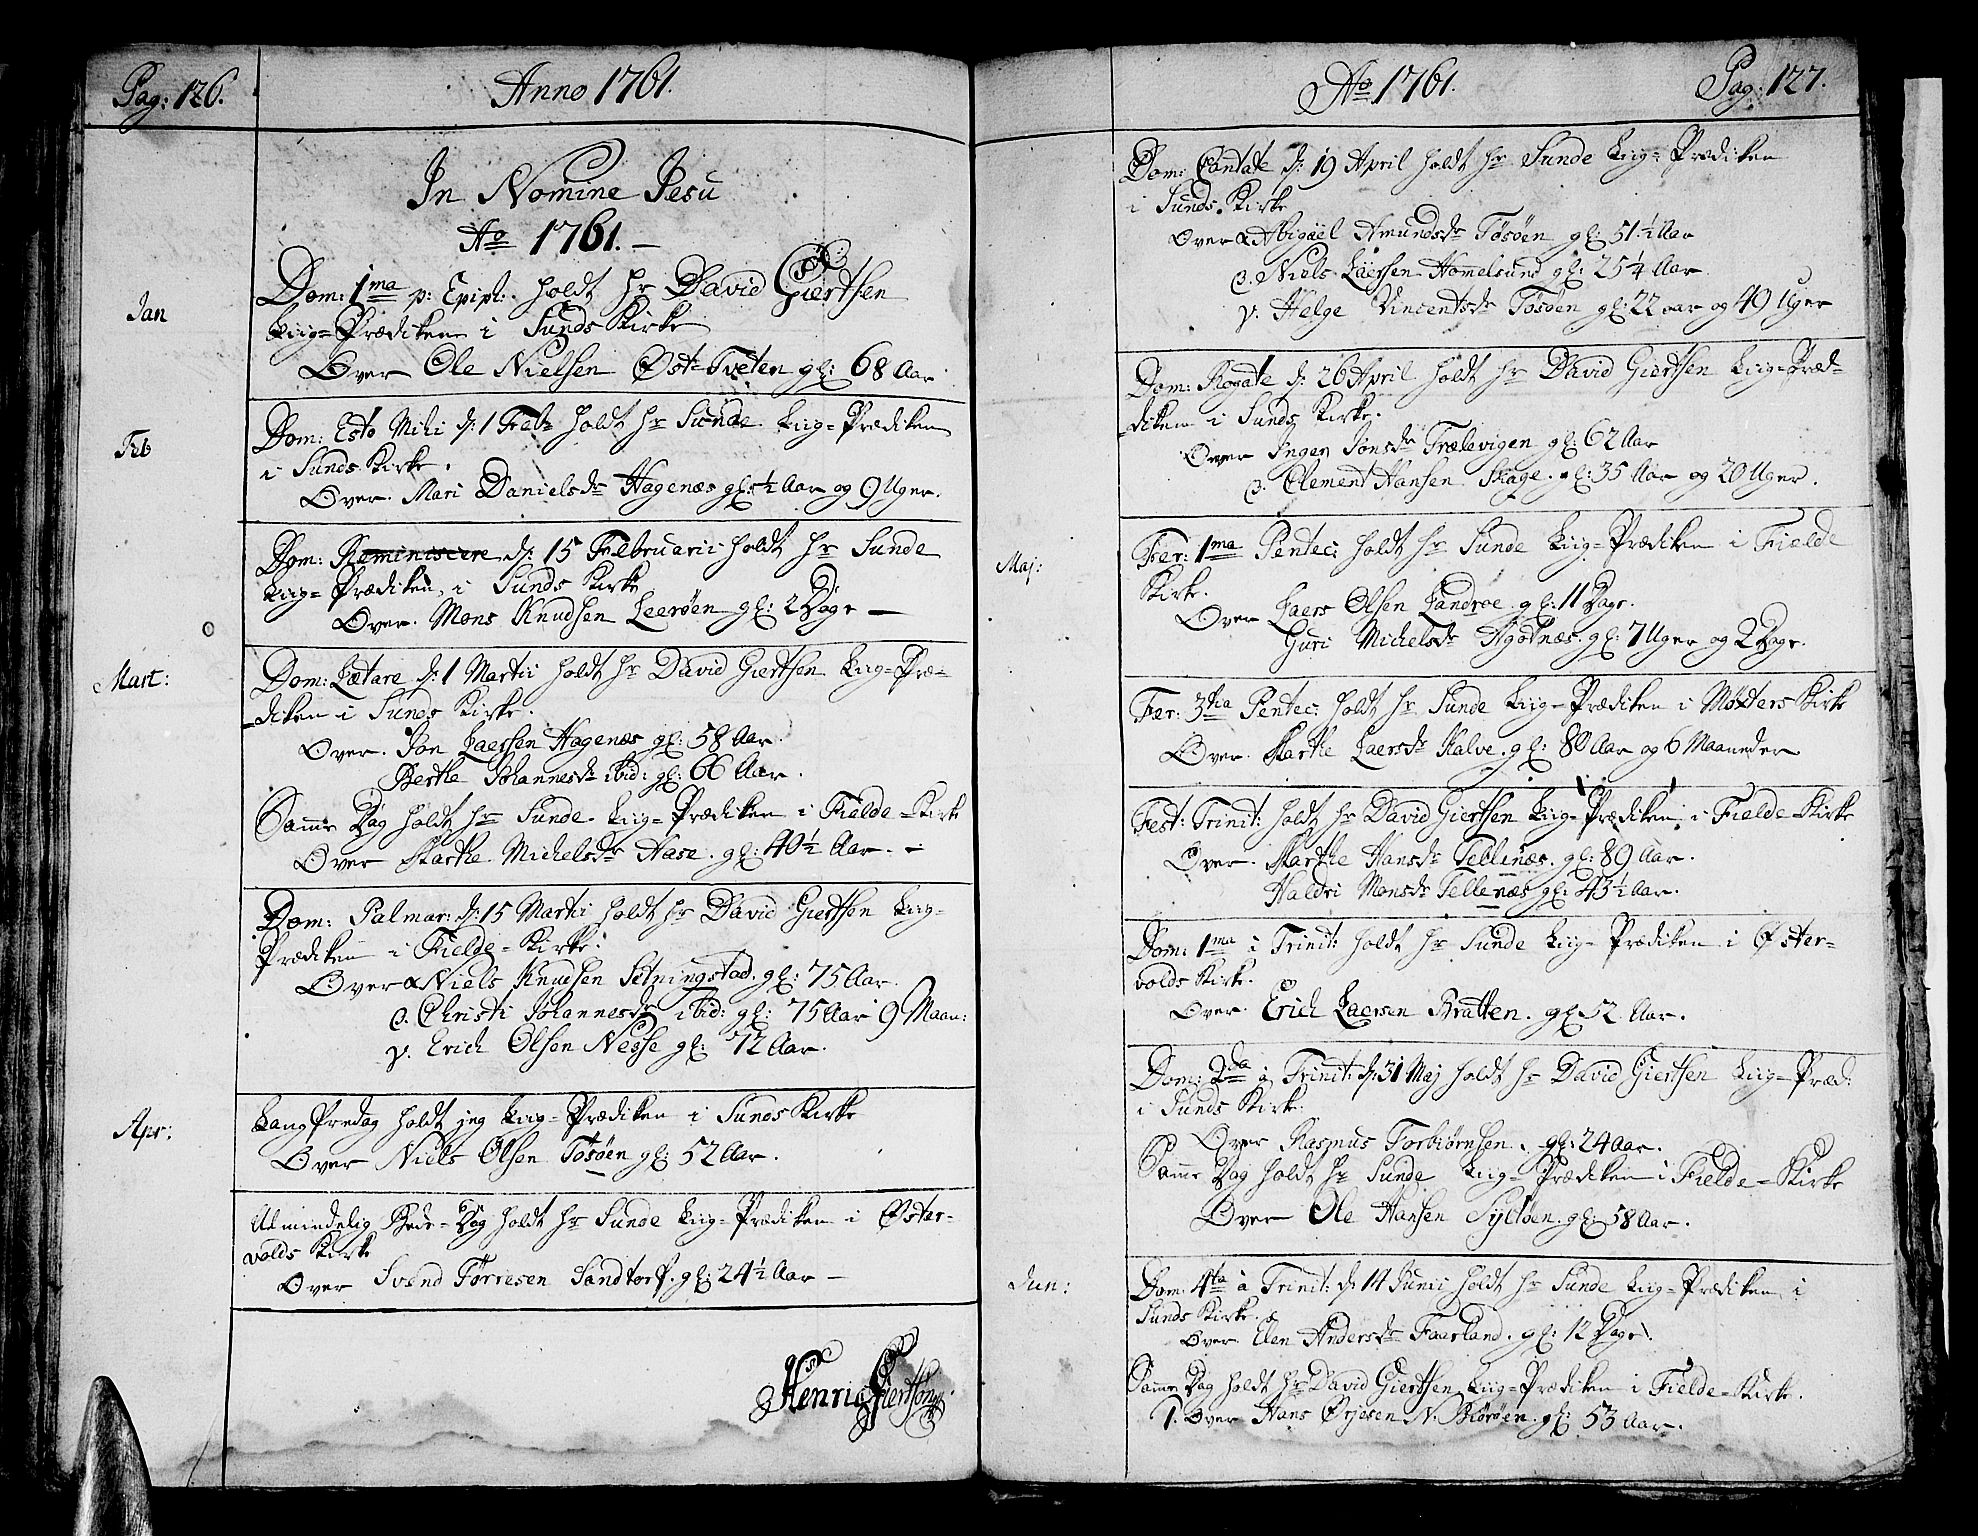 Pag: 126.
Anno 1761.
In Nomine Jesu
Ao 1761. –
Jan
Dom: 1ma p: Epiph: holdt hr David Giertsen
Liig-Prædiken i Sunds Kirke
Over Ole Nielsen Øst-Tveten gl: 68 Aar
Feb
Dom: Esto Mihi d: 1 Feb: holdt hr Sunde Liig-Prædiken
i Sunds Kirke.
Over. Mari Danielsdr Hagenæs gl: ½ Aar og 9 Uger.
Dom: Reminiscere d: 15 Februarii holdt hr Sunde
Liig-Prædiken, i Sunds Kirke
Over. Mons Knudsen Leerøen gl: 2 Dage –
Mart:
Dom: Lætare d: 1 Martii holdt hr David Giertsen Liig-Præ-
diken i Sunds Kirke.
Over. Jon Laersen Hagenæs gl: 58 Aar.
Berthe Johannesdr ibid: gl: 66 Aar.
Samme Dag holdt hr Sunde. Liig-Prædiken i Fielde-Kirke
Over Marthe Michelsdr Hase. gl: 40½ Aar. –
Dom: Palmar: d: 15 Martii holdt hr David Giertsen Liig-
Prædiken i Fielde-Kirke.
Over α Niels Knudsen Setningstad. gl: 75 Aar.
β. Christi Johannesdr ibid: gl: 75 Aar 9 Maan:
γ. Erich Olsen Nesse gl: 72 Aar.
Apr:
Lang Fredag holdt jeg Liig-Prædiken i Sunds Kirke
Over Niels Olsen Tøsøen gl: 52 Aar.
Almindelig Bede-Dag holdt hr Sunde Liig-Prædiken i Øster-
volds Kirke
Over Svend Tørresen Sandtorf. gl: 24½ Aar –
Henric Giertsen
Ao 1761.
Pag: 127.
Dom: Cantate d: 19 April holdt hr Sunde Liig-Prædiken
i Sunds. Kirke
Over α Abigael Amundsdr Tøsøen gl: 51½ Aar
β. Niels Laersen Hommelsund gl: 25¼ Aar
γ. Helge Vincentsdr Tøsøen gl: 22 aar og 49 Uger
Dom: Rogate d: 26 April holdt hr David Giertsen Liig-Præd-
diken i Sunds Kirke.
Over Inger Jonsdr Trælevigen gl: 62 Aar
β. Clement Hansen Skage. gl: 35 Aar og 20 Uger.
Maj:
Fer: 1ma Pentec: holdt hr Sunde Liig-Prædiken i Fielde
Kirke.
Over Laers Olsen Landroe. gl: 11 Dage.
Guri Michelsdr Agotnæs. gl: 7 Uger og 2 Dage.
Fer: 3tia Pentec: holdt hr Sunde Liig-Prædiken i Møxters Kirke
Over. Marthe Laersdr Kalve. gl: 80 Aar og 6 Maaneder
Fest: Trinit: holdt hr David Giertsen Liig-Prædiken, i Fielde-Kirke
Over. Marthe Hansdr Tellenæs. gl: 89 Aar.
Haldri Monsdr Tellenæs gl: 43½ Aar.
Dom: 1ma à Trinit: holdt hr Sunde Liig-Prædiken i Øster-
volds Kirke.
Over. Erich Laersen Bratten. gl 52 Aar.
Dom: 2da à Trinit: d: 31 Maj holdt hr David Giertsen Liig-Præd:
i Sunds Kirke.
Over Rasmus Torbiørnsen. gl: 24 Aar.
Samme Dag holdt hr Sunde Liig-Prædiken i Fielde-Kirke
Over Ole Hansen Syltøen. gl: 58 Aar.
Jun:
Dom: 4ta à Trinit: d: 14 Junii holdt hr Sunde Liig-Prædiken i
Sunds Kirke.
Over Elen Andersdr Faarland. gl: 12 Dage.
Samme Dag holdt hr David Giertsen Liig-Prædiken i Fielde-Kirke.
1. Over Hans Ørjesen N. Biørøen. gl: 53 Aar.